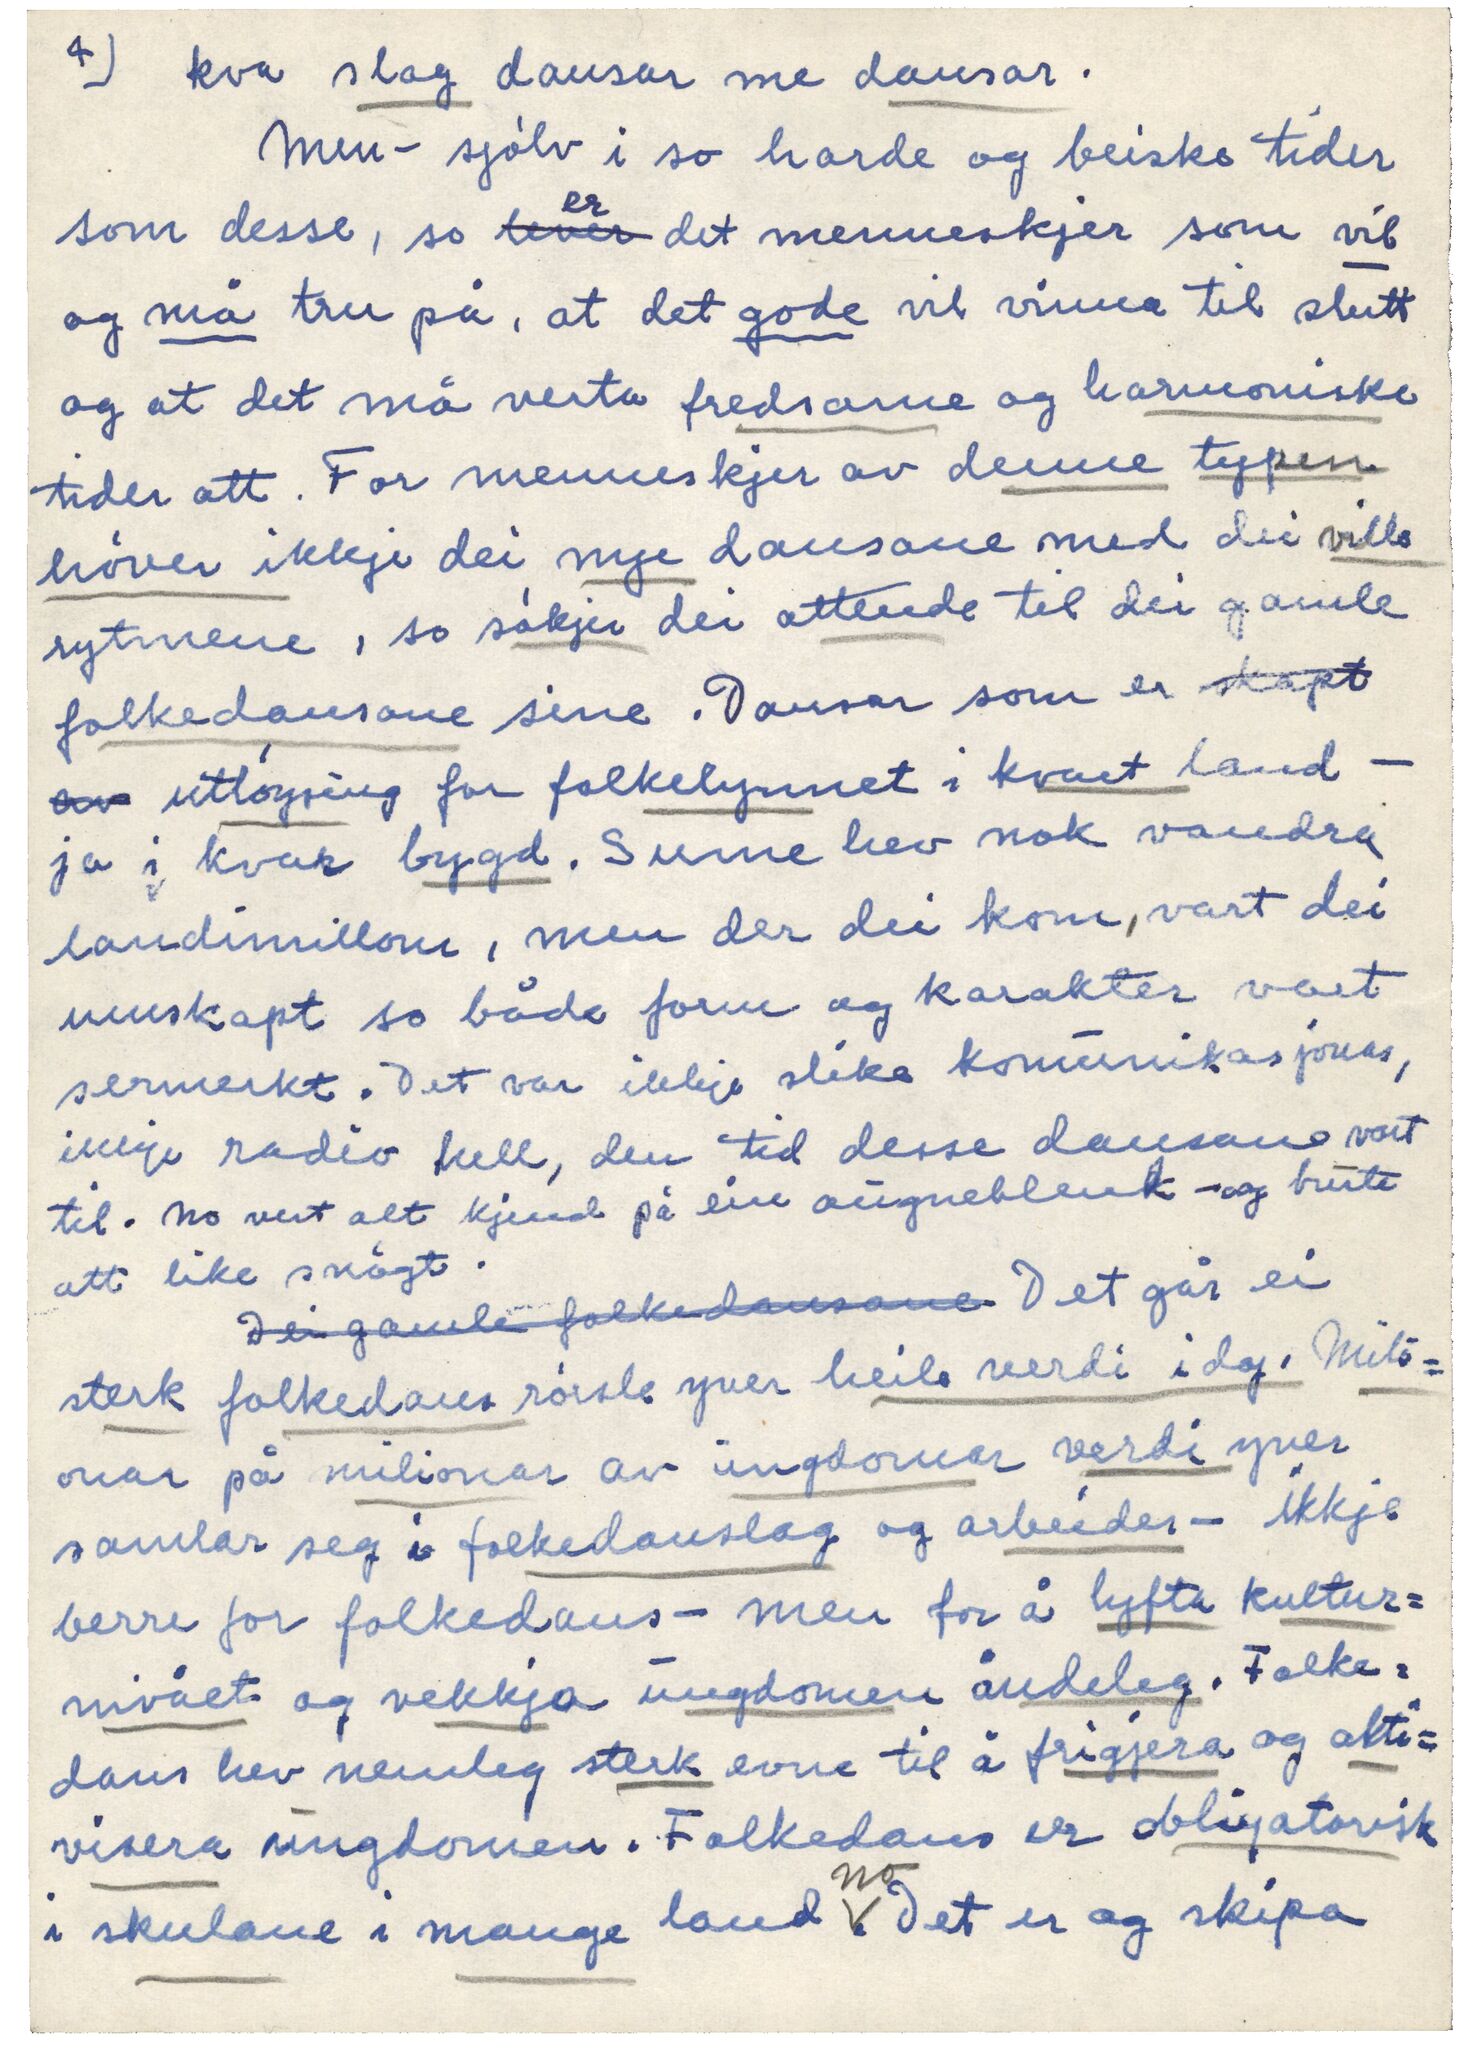 4) kva slag dansar me dansar.
Men – sjólv i so harde og beiske tider
som desse, so lever er det menneskjer som vil
og må tru på, at det gode vil vinna til slutt
og at det må verta fredsame og harmoniske
tider att. For menneskjer av denne typen
höver ikkje dei nye dansane med dei ville
rytmene, so sökjer dei attende til dei gamle
folkedansane sine. Dansar som er skapt
av utlöysing for folkelynnet i kvart land –
ja i kvar bygd. Sume hev nok vandra
landimillom, men der dei kom, vart dei
umskapt so både form og karakter vart
sermerkt. Det var ikkje slike komunikasjonar,
ikkje radio hell, den tid desse dansane vart
til. No vert alt kjend på ein augneblenk – og burte
att like snögt.
Dei gamle folkedansane Det går ei
sterk folkedans rörsle yver heile verdi idag. Mili=
onar på milionar av ungdomar verdi yver
samlar seg i folkedanslag og arbeider – ikkje
berre for folkedans – men for å lyfta kultur=
nivået og vekkja ungdomen åndeleg. Folke=
dans hev nemleg sterk evne til å frigjera og akti=
visera ungdomen. Folkedans er obligatorisk
i skulane i mange land no. Det er og skipa